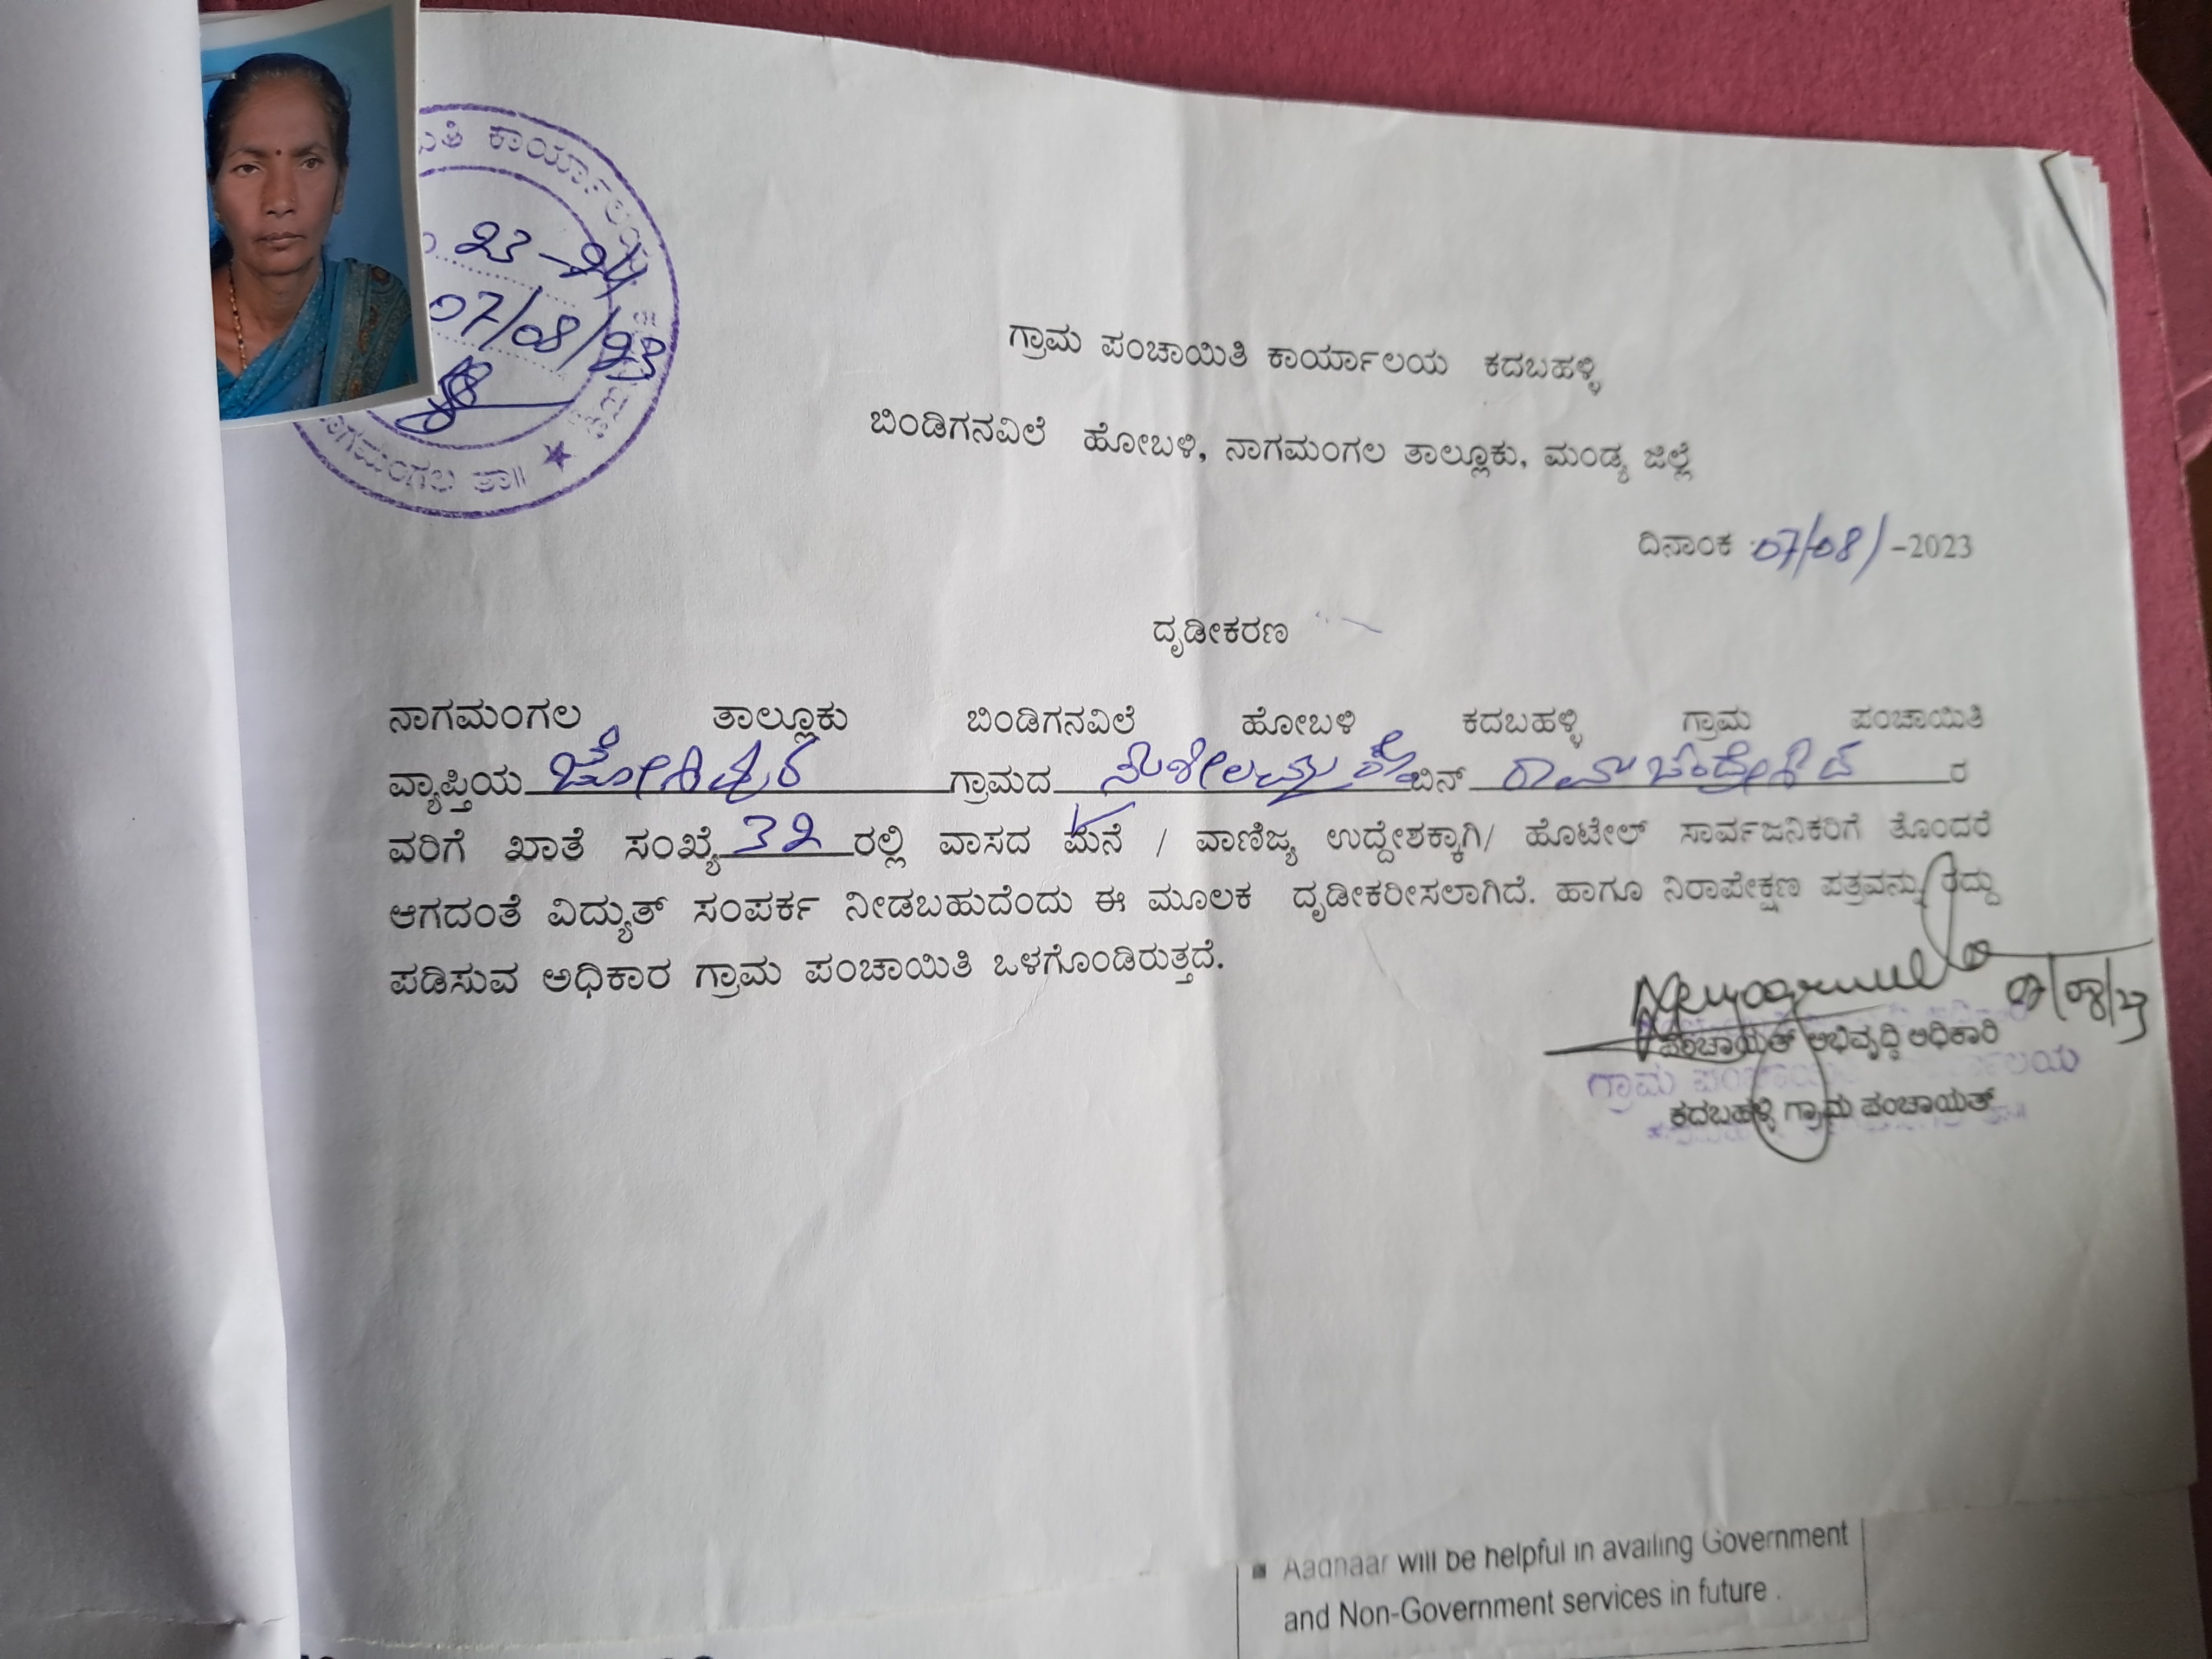 ಕಾರ್ಯಾಲಯ
23-24
07/08/23
ನಾಗಮಂಗಲ ತಾ॥
ಗ್ರಾಮ ಪಂಚಾಯಿತಿ ಕಾರ್ಯಾಲಯ ಕದಬಹಳ್ಳಿ
ಬಿಂಡಿಗನವಿಲೆ ಹೋಬಳಿ, ನಾಗಮಂಗಲ ತಾಲ್ಲೂಕು, ಮಂಡ್ಯ ಜಿಲ್ಲೆ
ದಿನಾಂಕ :07/08/-2023
ದೃಡೀಕರಣ
ನಾಗಮಂಗಲ ತಾಲ್ಲೂಕು ಬಿಂಡಿಗನವಿಲೆ ಹೋಬಳಿ ಕದಬಹಳ್ಳಿ ಗ್ರಾಮ ಪಂಚಾಯಿತಿ
ವ್ಯಾಪ್ತಿಯ ಗ್ರಾಮದ ಸುಶೀಲಮ್ಮ ಕೋಂ ಬಿನ್ ರಾಮಚಂದ್ರೇಗೌಡ ರ
ವರಿಗೆ ಖಾತೆ ಸಂಖ್ಯೆ 32 ರಲ್ಲಿ ವಾಸದ ಮನೆ / ವಾಣಿಜ್ಯ ಉದ್ದೇಶಕ್ಕಾಗಿ/ ಹೊಟೇಲ್ ಸಾರ್ವಜನಿಕರಿಗೆ ತೊಂದರೆ
ಆಗದಂತೆ ವಿದ್ಯುತ್ ಸಂಪರ್ಕ ನೀಡಬಹುದೆಂದು ಈ ಮೂಲಕ ದೃಡೀಕರೀಸಲಾಗಿದೆ. ಹಾಗೂ ನಿರಾಪೇಕ್ಷಣ ಪತ್ರವನ್ನು ರದ್ದು
ಪಡಿಸುವ ಅಧಿಕಾರ ಗ್ರಾಮ ಪಂಚಾಯಿತಿ ಒಳಗೊಂಡಿರುತ್ತದೆ.
07/08/23
ಪಂಚಾಯತ್ ಅಭಿವೃದ್ಧಿ ಅಧಿಕಾರಿ
ಕದಬಹಳ್ಳಿ ಗ್ರಾಮ ಪಂಚಾಯತ್
Aadhaar will be helpful in availing Government
and Non-Government services in future .